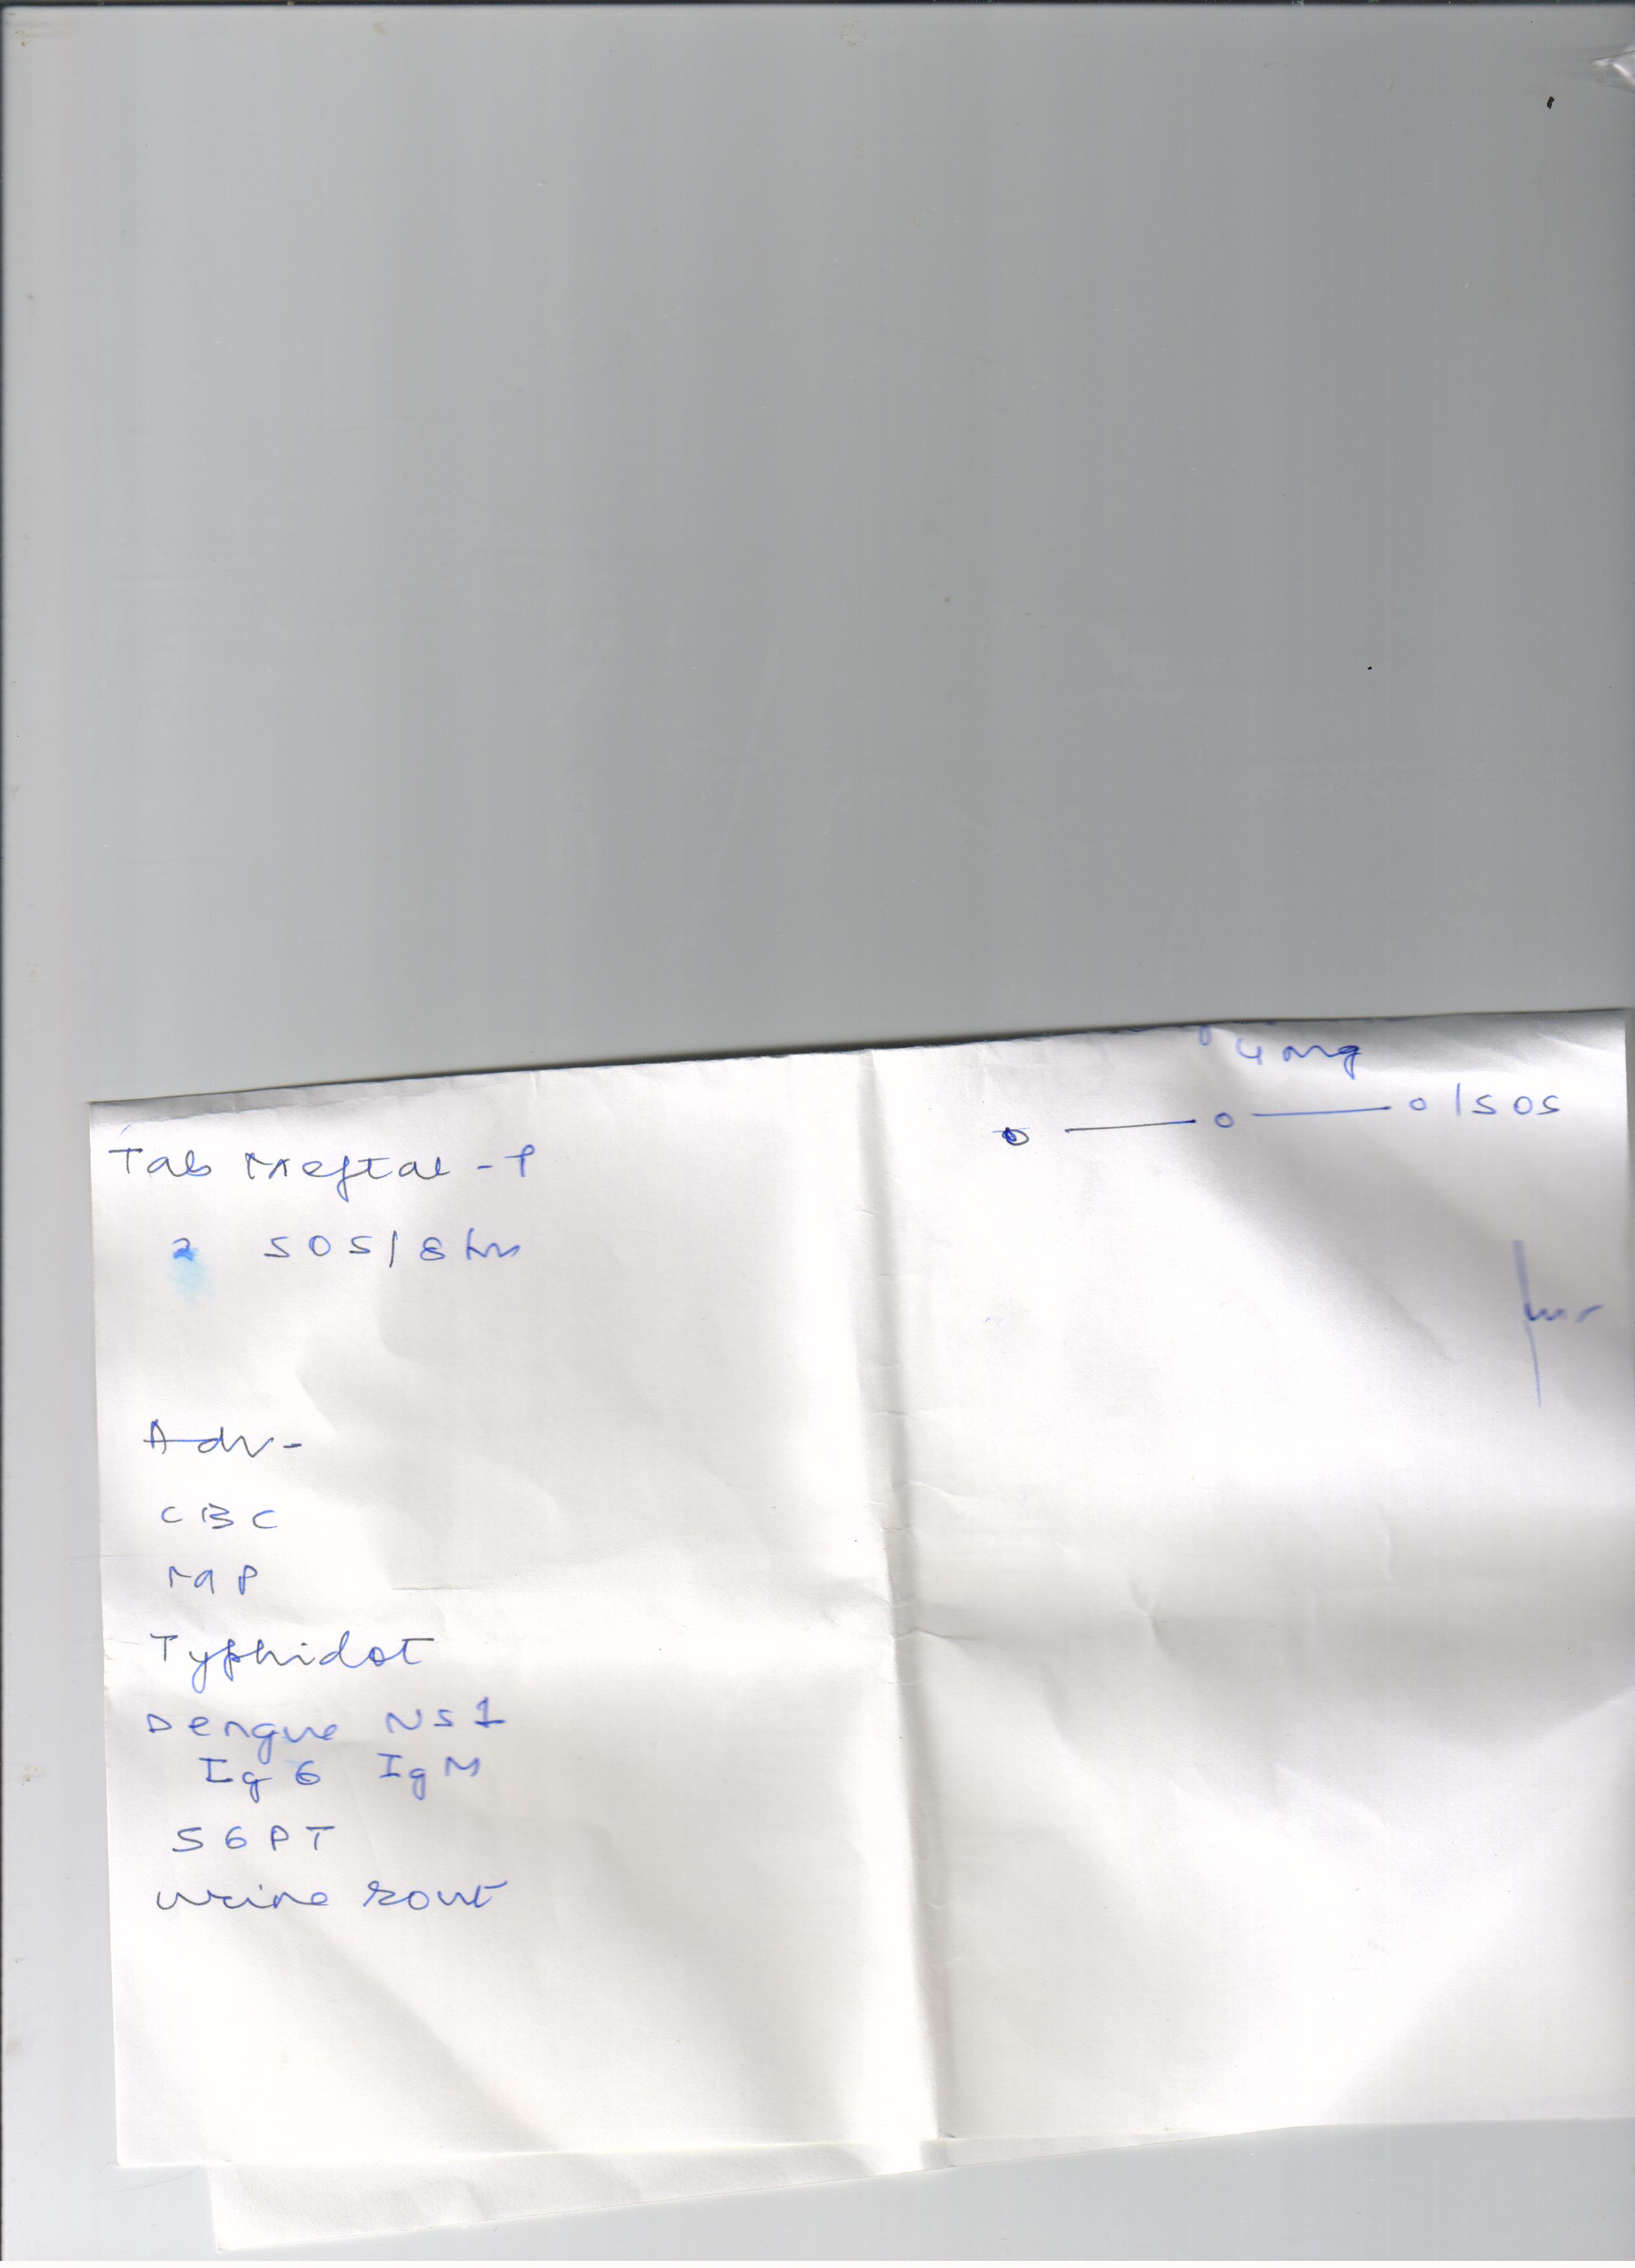 4 mg
0 — 0 — 0 / SOS
Tab Meftal - P
2 SOS / 8 hrs
Adv -
CBC
MP
Typhidot
Dengue NS1
IgG IgM
SGPT
Urine rout